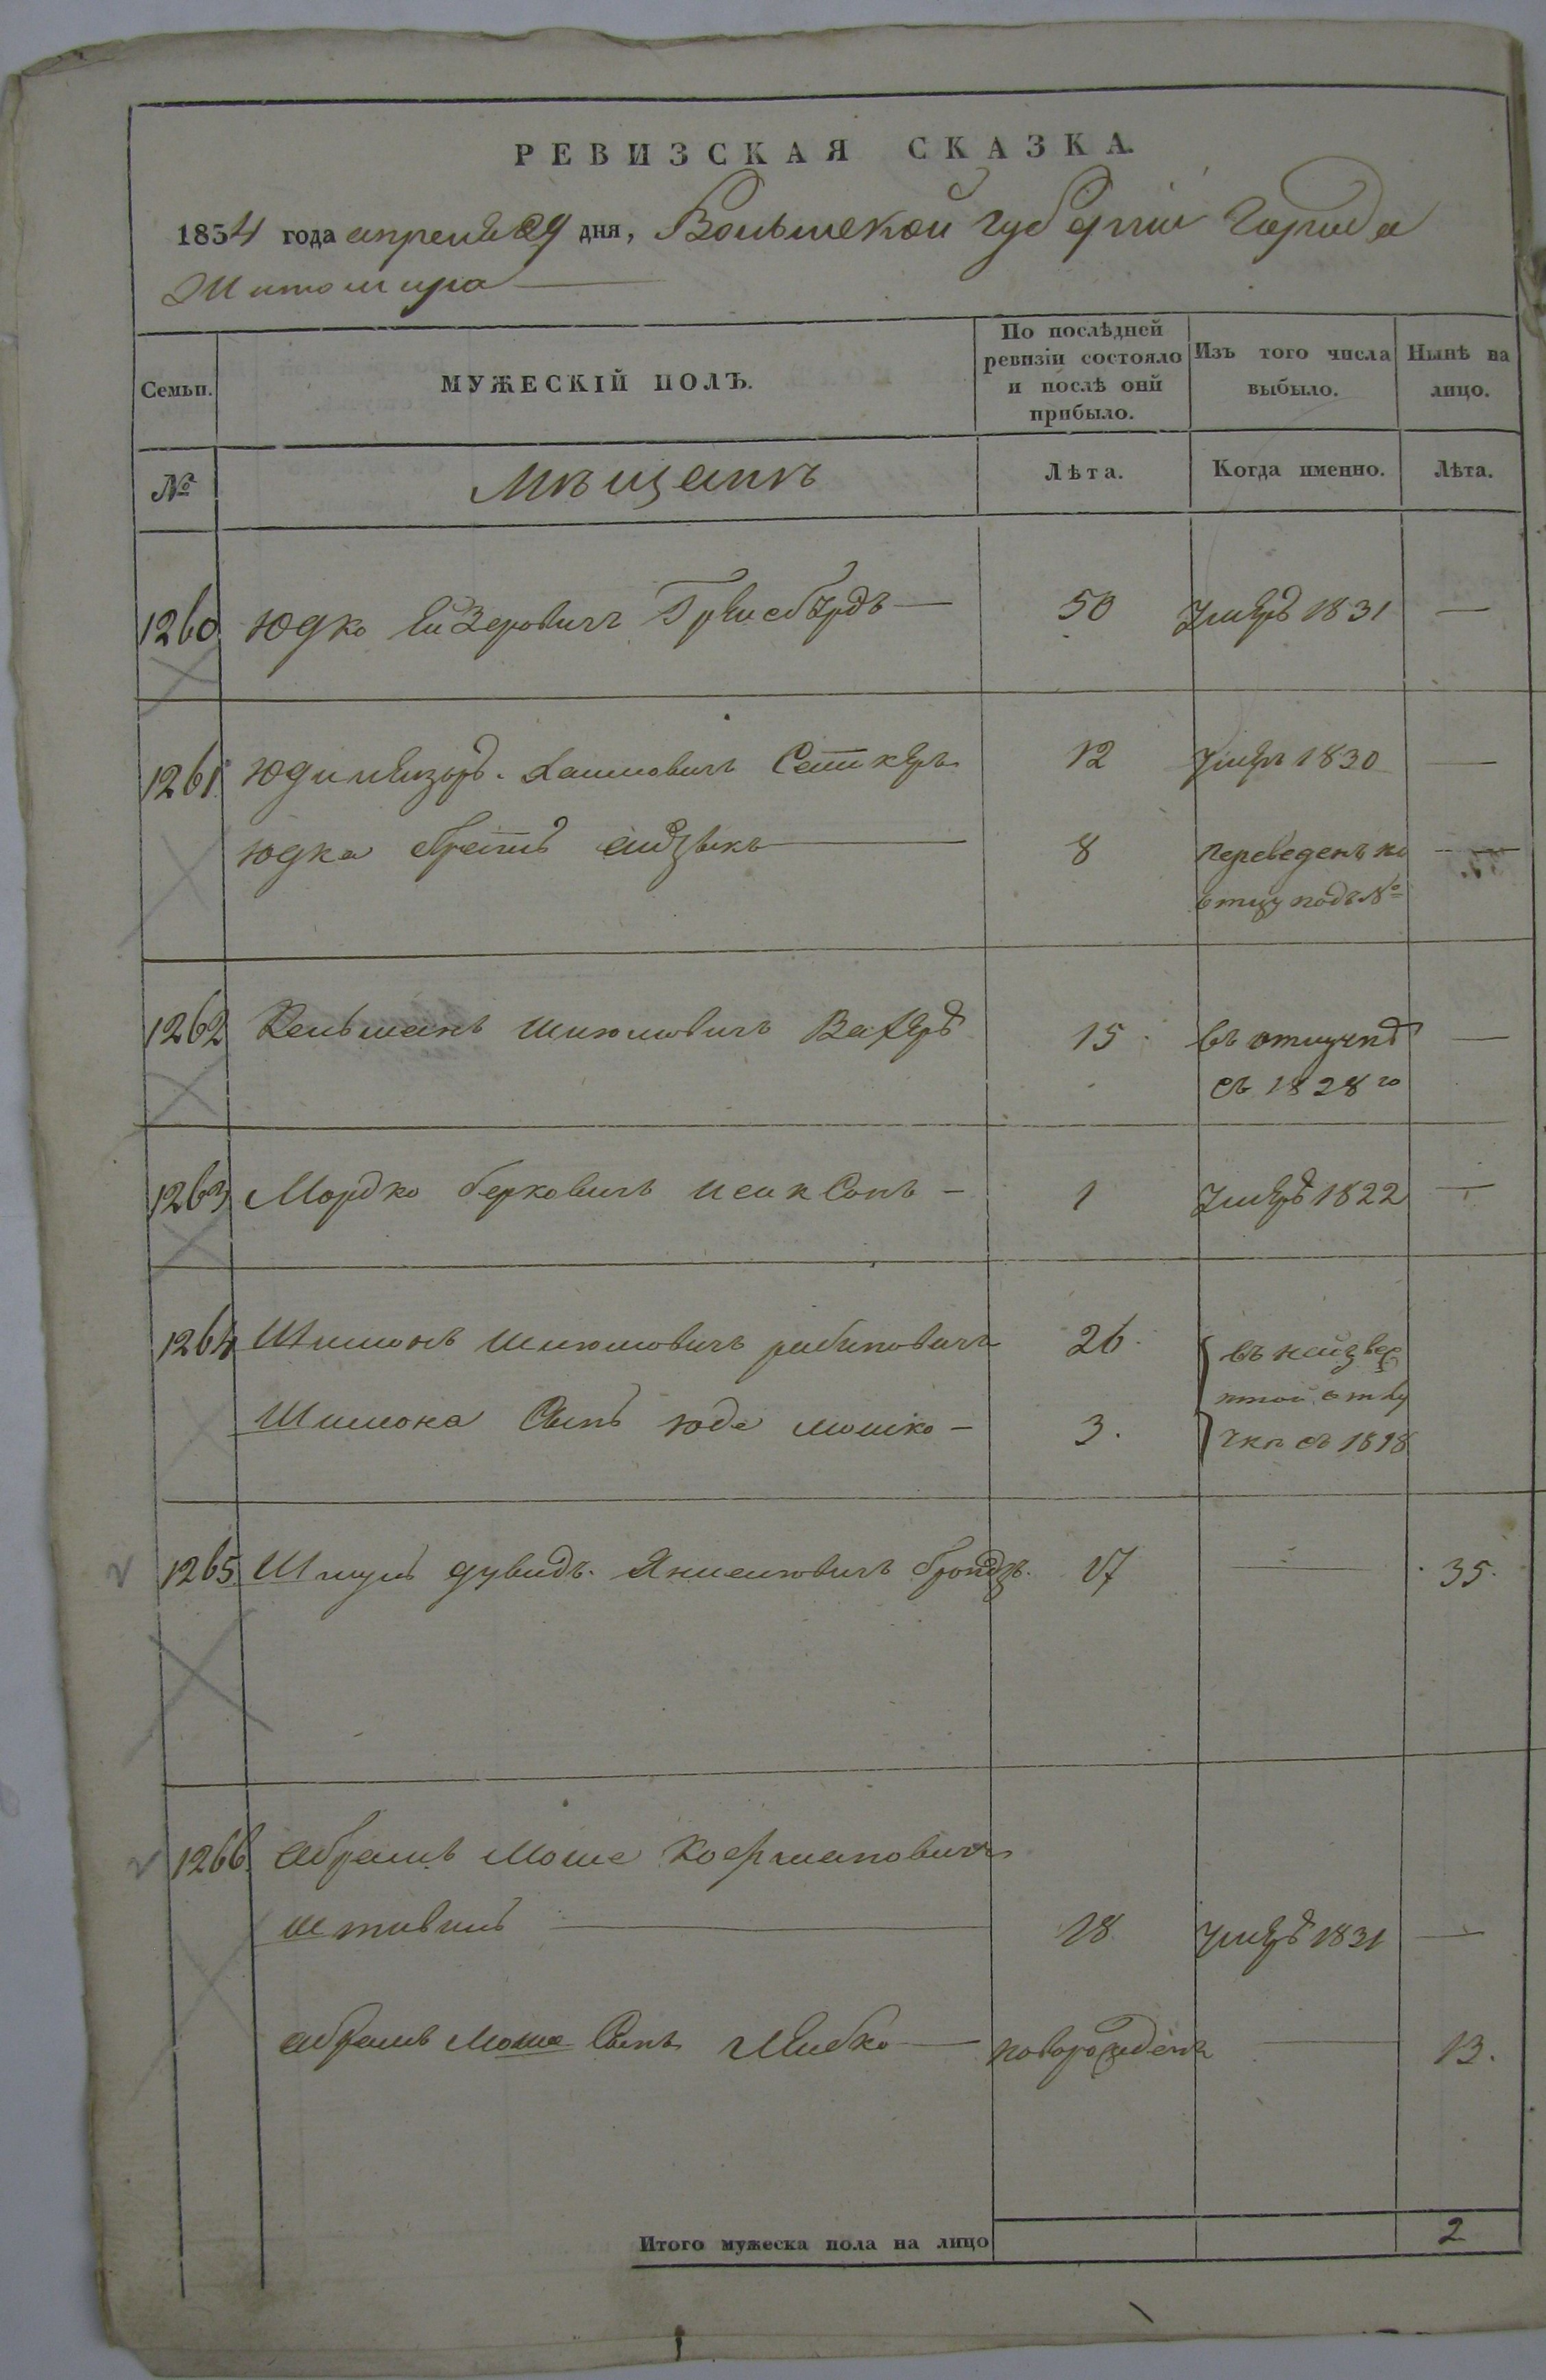 РЕВИЗСКАЯ СКАЗКА.
1834 года апреля 29 дня, Волынской губерніи Города
Житомира
Семьи.
МУЖЕСКІЙ ПОЛЪ.
По послѣдней
ревизіи состояло
и послѣ оній
прибыло.
Изъ того числа
выбыло.
Нынѣ на
лицо.
№
Мѣщанъ
Лѣта.
Когда именно.
Лѣта.
1260 Юдко 50 умеръ 1831 —
1261 Хаимовичъ 12 умеръ 1830 —
Юдка братъ 8 переведенъ къ
отцу подъ №
1262 Кельманъ Шліомовичъ 15 въ отлучкѣ —
съ 1828 го
1263 Мордко Берковичъ 1 умеръ 1822 —
1264 Шимонъ Шліомовичъ Рабиновичъ 26
въ неизвес
тной отлу
чкѣ съ 1818
Шимона Сынъ Юда Мошко — 3.
1265 Шмуль Дувидъ 17 — 35.
1266 Абрамъ Моше
18 умеръ 1831 —
Абрамъ Моше Сынъ Лейбко — новорожденъ — 13.
Итого мужеска пола на лицо 2